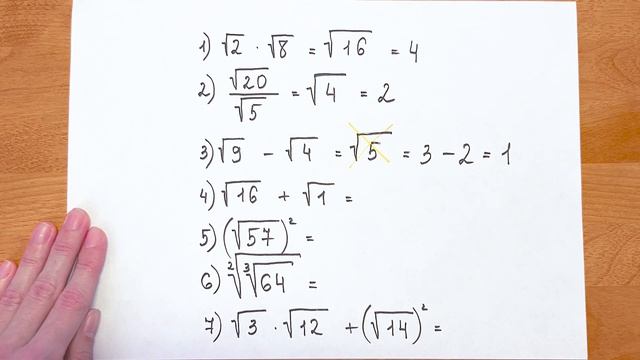 1) √2 · √8 = √16 = 4
2) √20/√5 = √4 = 2
3) √9 - √4 = √5 = 3 - 2 = 1
4) √16 + √1 =
5) (√57)² =
6) ²√³√64 =
7) √3 · √12 + (√14)² =